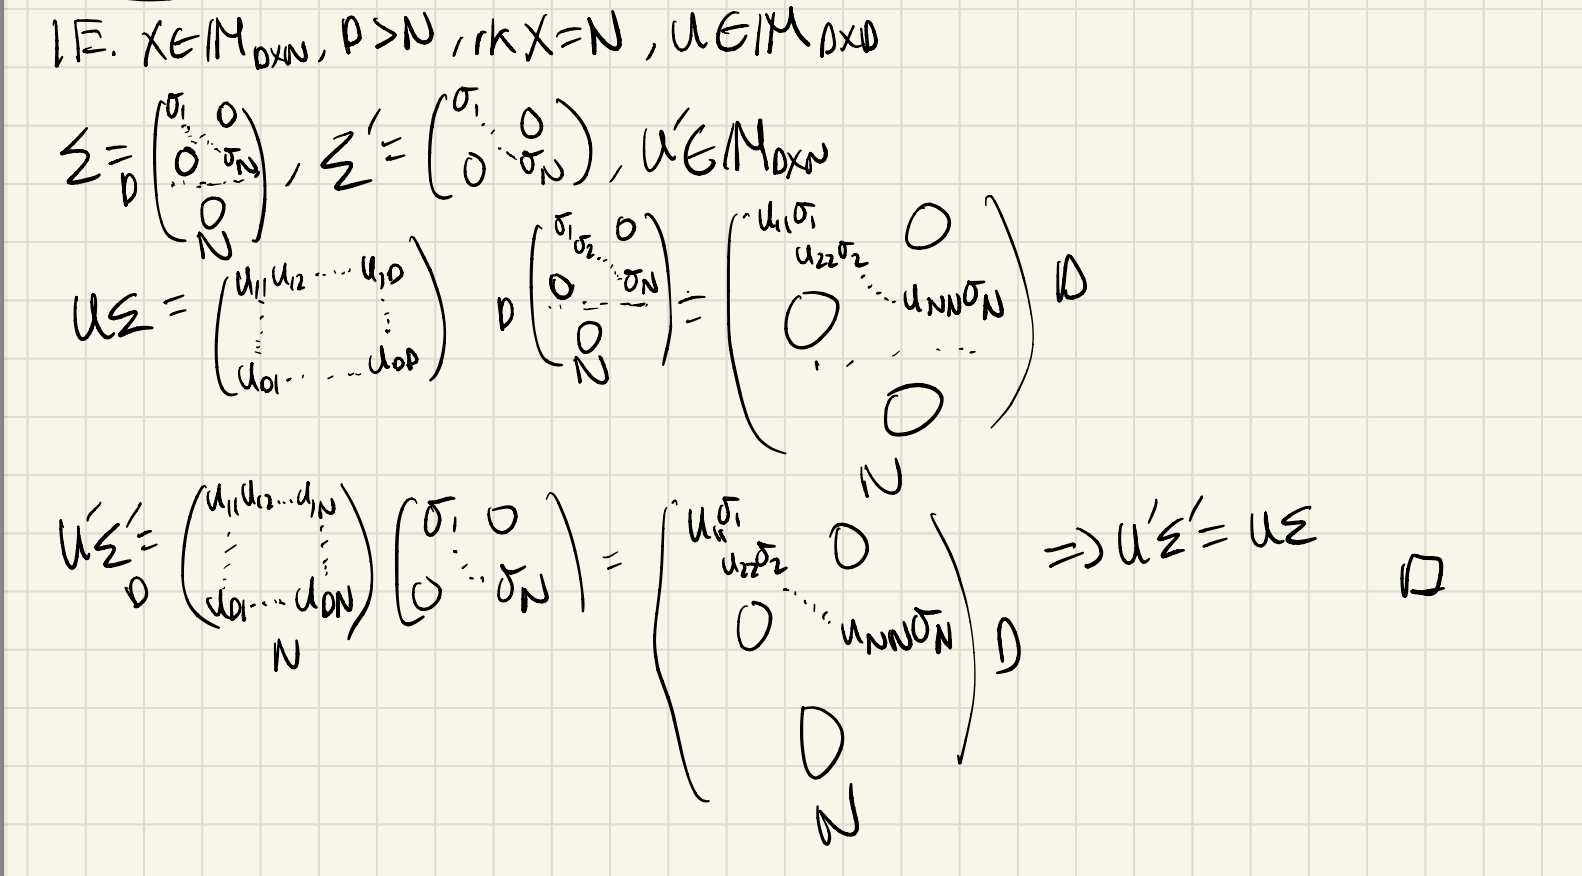 IE. X∈M_{D×N}, D>N, rk X=N, U∈M_{D×D}
Σ = D (σ₁ 0 0 σ_N 0) N, Σ' = (σ₁ 0 0 σ_N), U'∈M_{D×N}
UΣ = (u₁₁ u₁₂ ... u_{1D} u_{D1} ... u_{DD}) D (σ₁ σ₂ 0 0 σ_N 0) N = (u₁₁σ₁ u₂₂σ₂ 0 0 u_{NN}σ_N 0) D N
U'Σ' = D (u₁₁ u₁₂ ... u_{1N} u_{D1} ... u_{DN}) N (σ₁ 0 0 σ_N) = (u₁₁σ₁ u₂₂σ₂ 0 0 u_{NN}σ_N 0) D N ⇒ U'Σ' = UΣ □